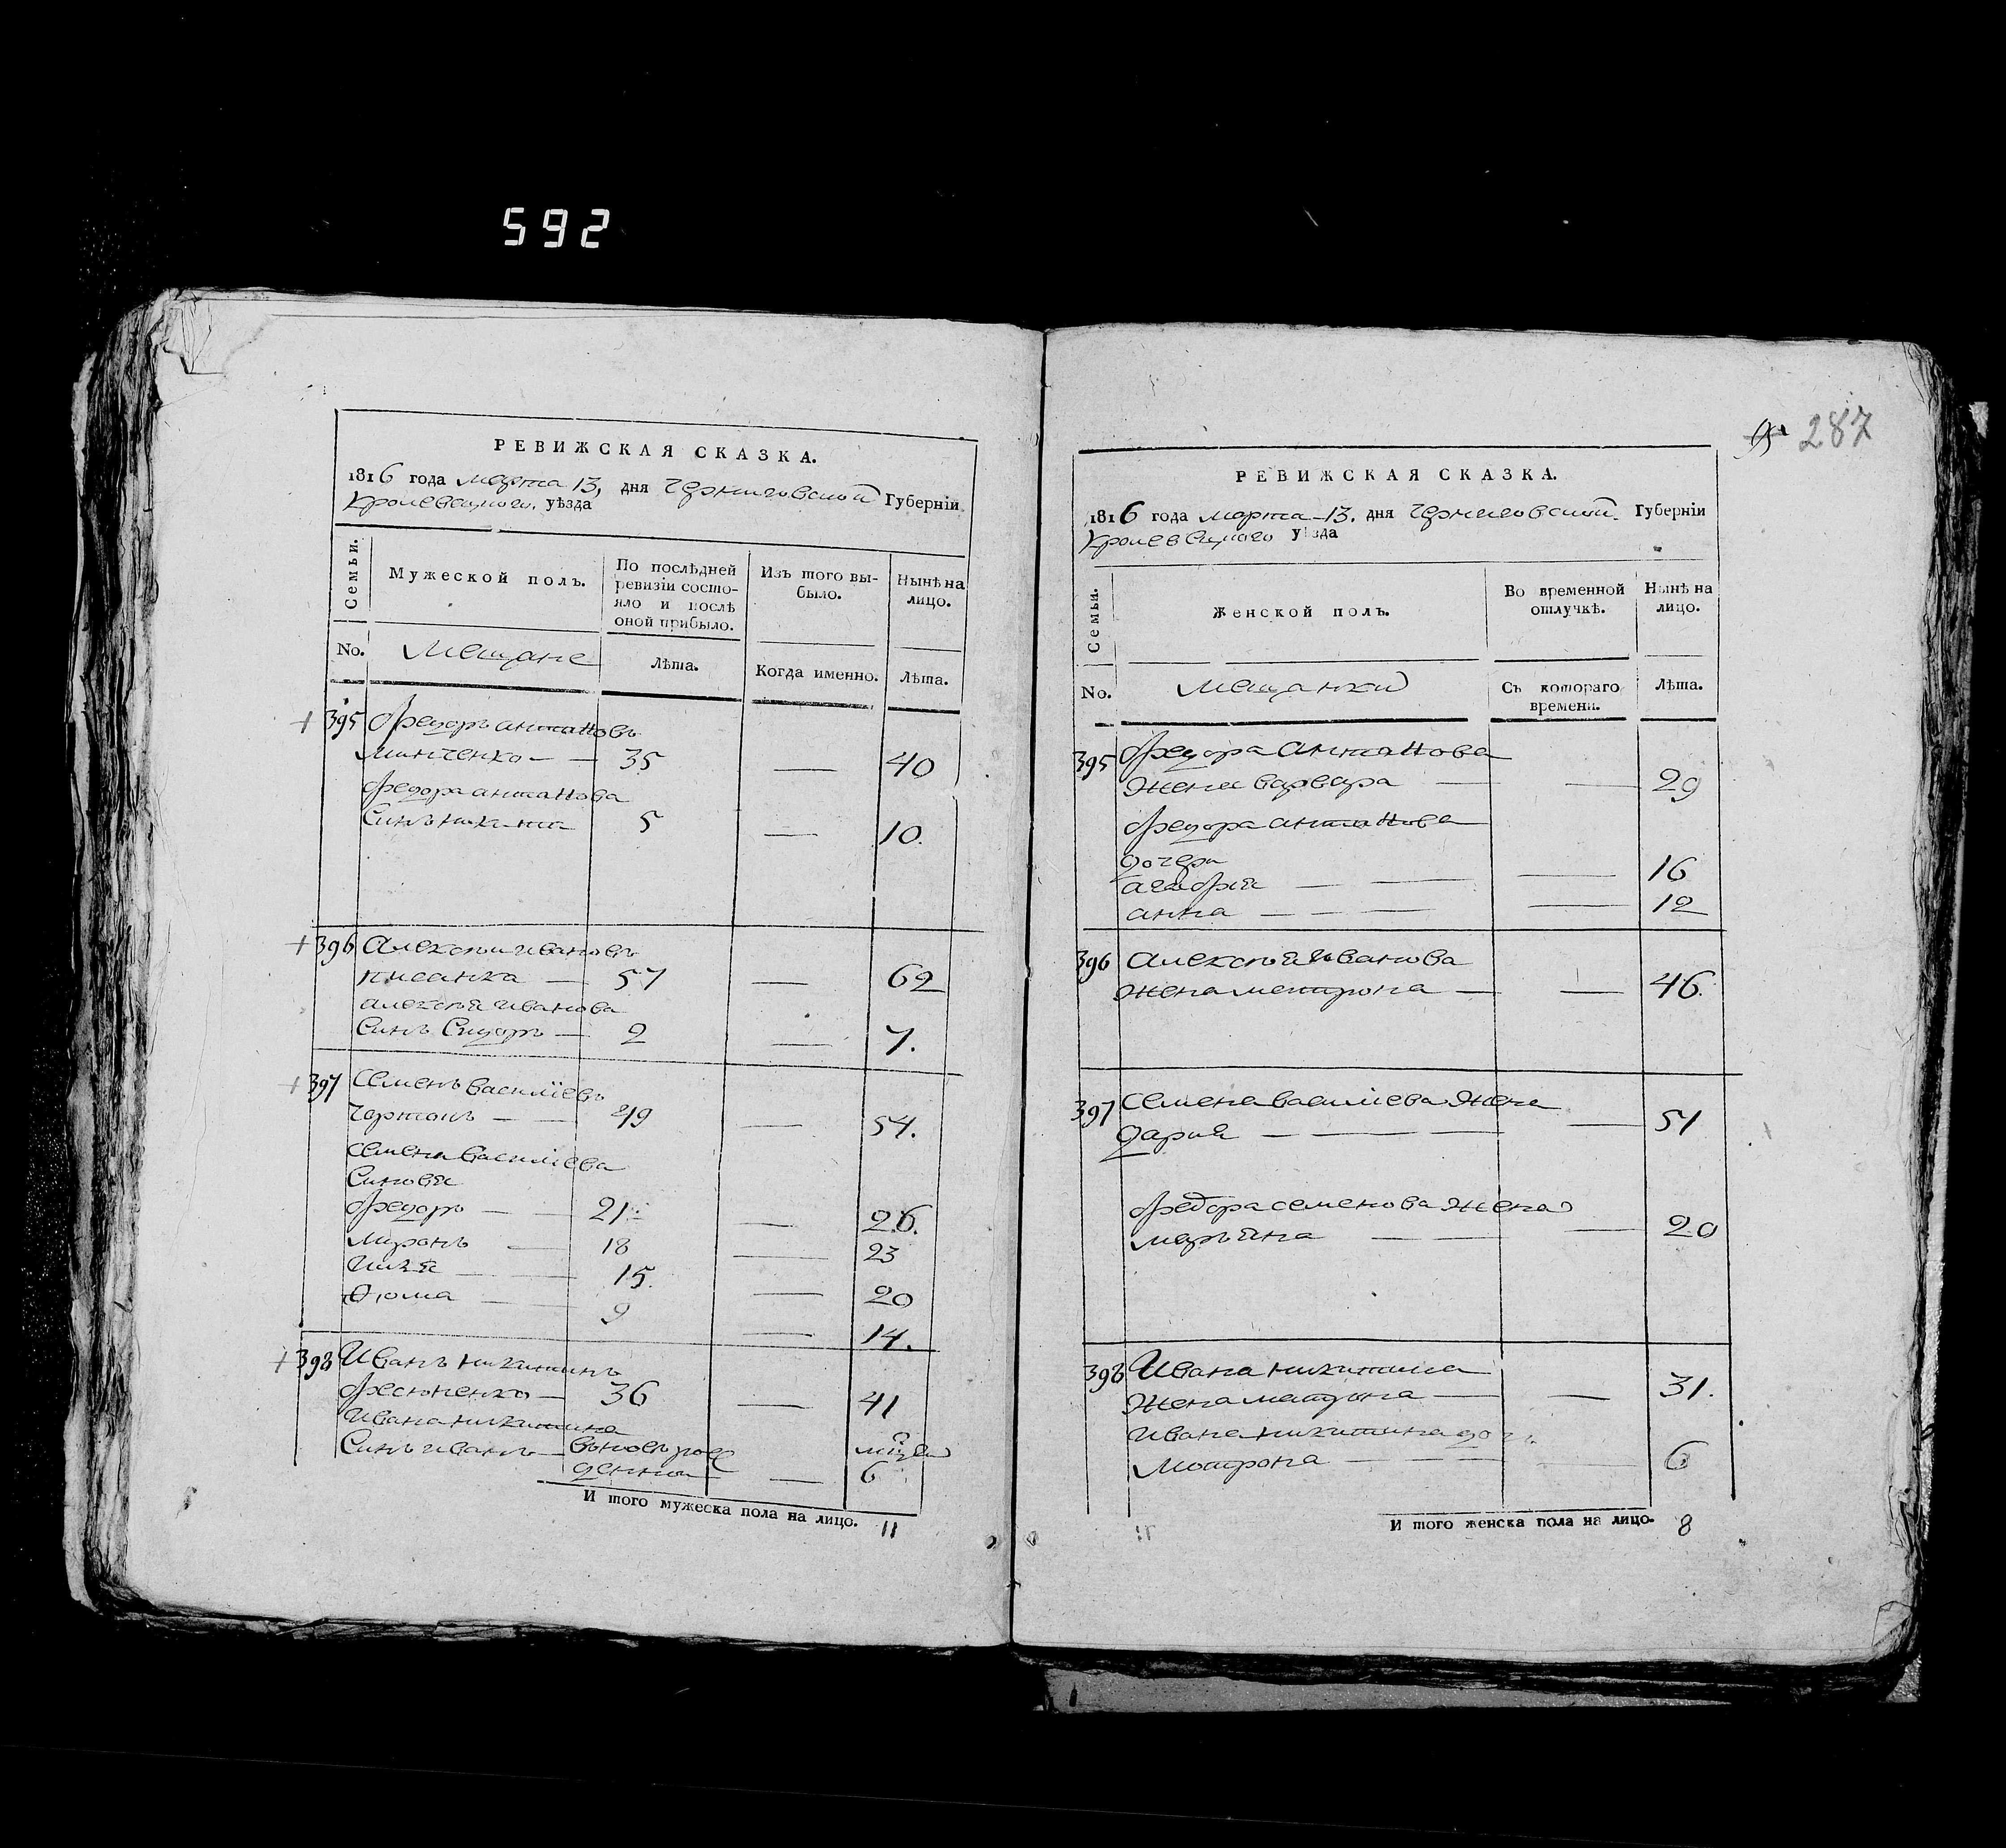 592
287
РЕВИЖСКАЯ СКАЗКА.
1816 года марта 13, дня Черниговской Губерніи
Кролевецкого. уѣзда
Семьи.
Мужеской полъ.
По послѣдней
ревизіи состо-
яло и послѣ
оной прибыло.
Изъ того вы-
было.
Нынѣ на
лицо.
No.
Мещане
Лѣта.
Когда именно.
Лѣта.
395 Федоръ антановъ
минченко — — 35 — 40
Федора антанова
Синъ никита 5 — 10.
396 алексѣи ивановъ
писанка — 57 — 62
алексѣя иванова
Синъ Сидоръ — 2 — 7.
397 Семенъ василіевъ
Чортокъ — — 49 — 54.
семена василіева
Синовя
Федоръ — — 21 — 26.
Миронъ — 18 — 23
илия — — 15. — 20
Фома — — 9 — 14.
398 Иванъ никитинъ
Фесюненко — 36 — 41
Ивана никитина
Синъ иванъ — вновъ рож мцей
денни — 6
И того мужеска пола на лицо. 11
РЕВИЖСКАЯ СКАЗКА.
1816 года марта 13. дня Черниговской. Губерніи
Кролевецкого уѣзда
Семьи.
Женской полъ.
Во временной
отлучкѣ.
Нынѣ на
лицо.
No.
Мещанки
Съ котораго
времени.
Лѣта.
395 Федора антанова
Жена варвара — — 29
Федора антанова
дочери
агафия — — — 16
анна — — — — 12
396 алексѣя иванова
Жена матрона — — 46.
397 семена василіева Жена
дария — — — — 51
Федора семенова жена
маръяна — — — 20
398 Ивана никитина
Жена — — 31.
Ивана никитина дочъ
Мотрона — — — — 6
И того женска пола на лицо. 8